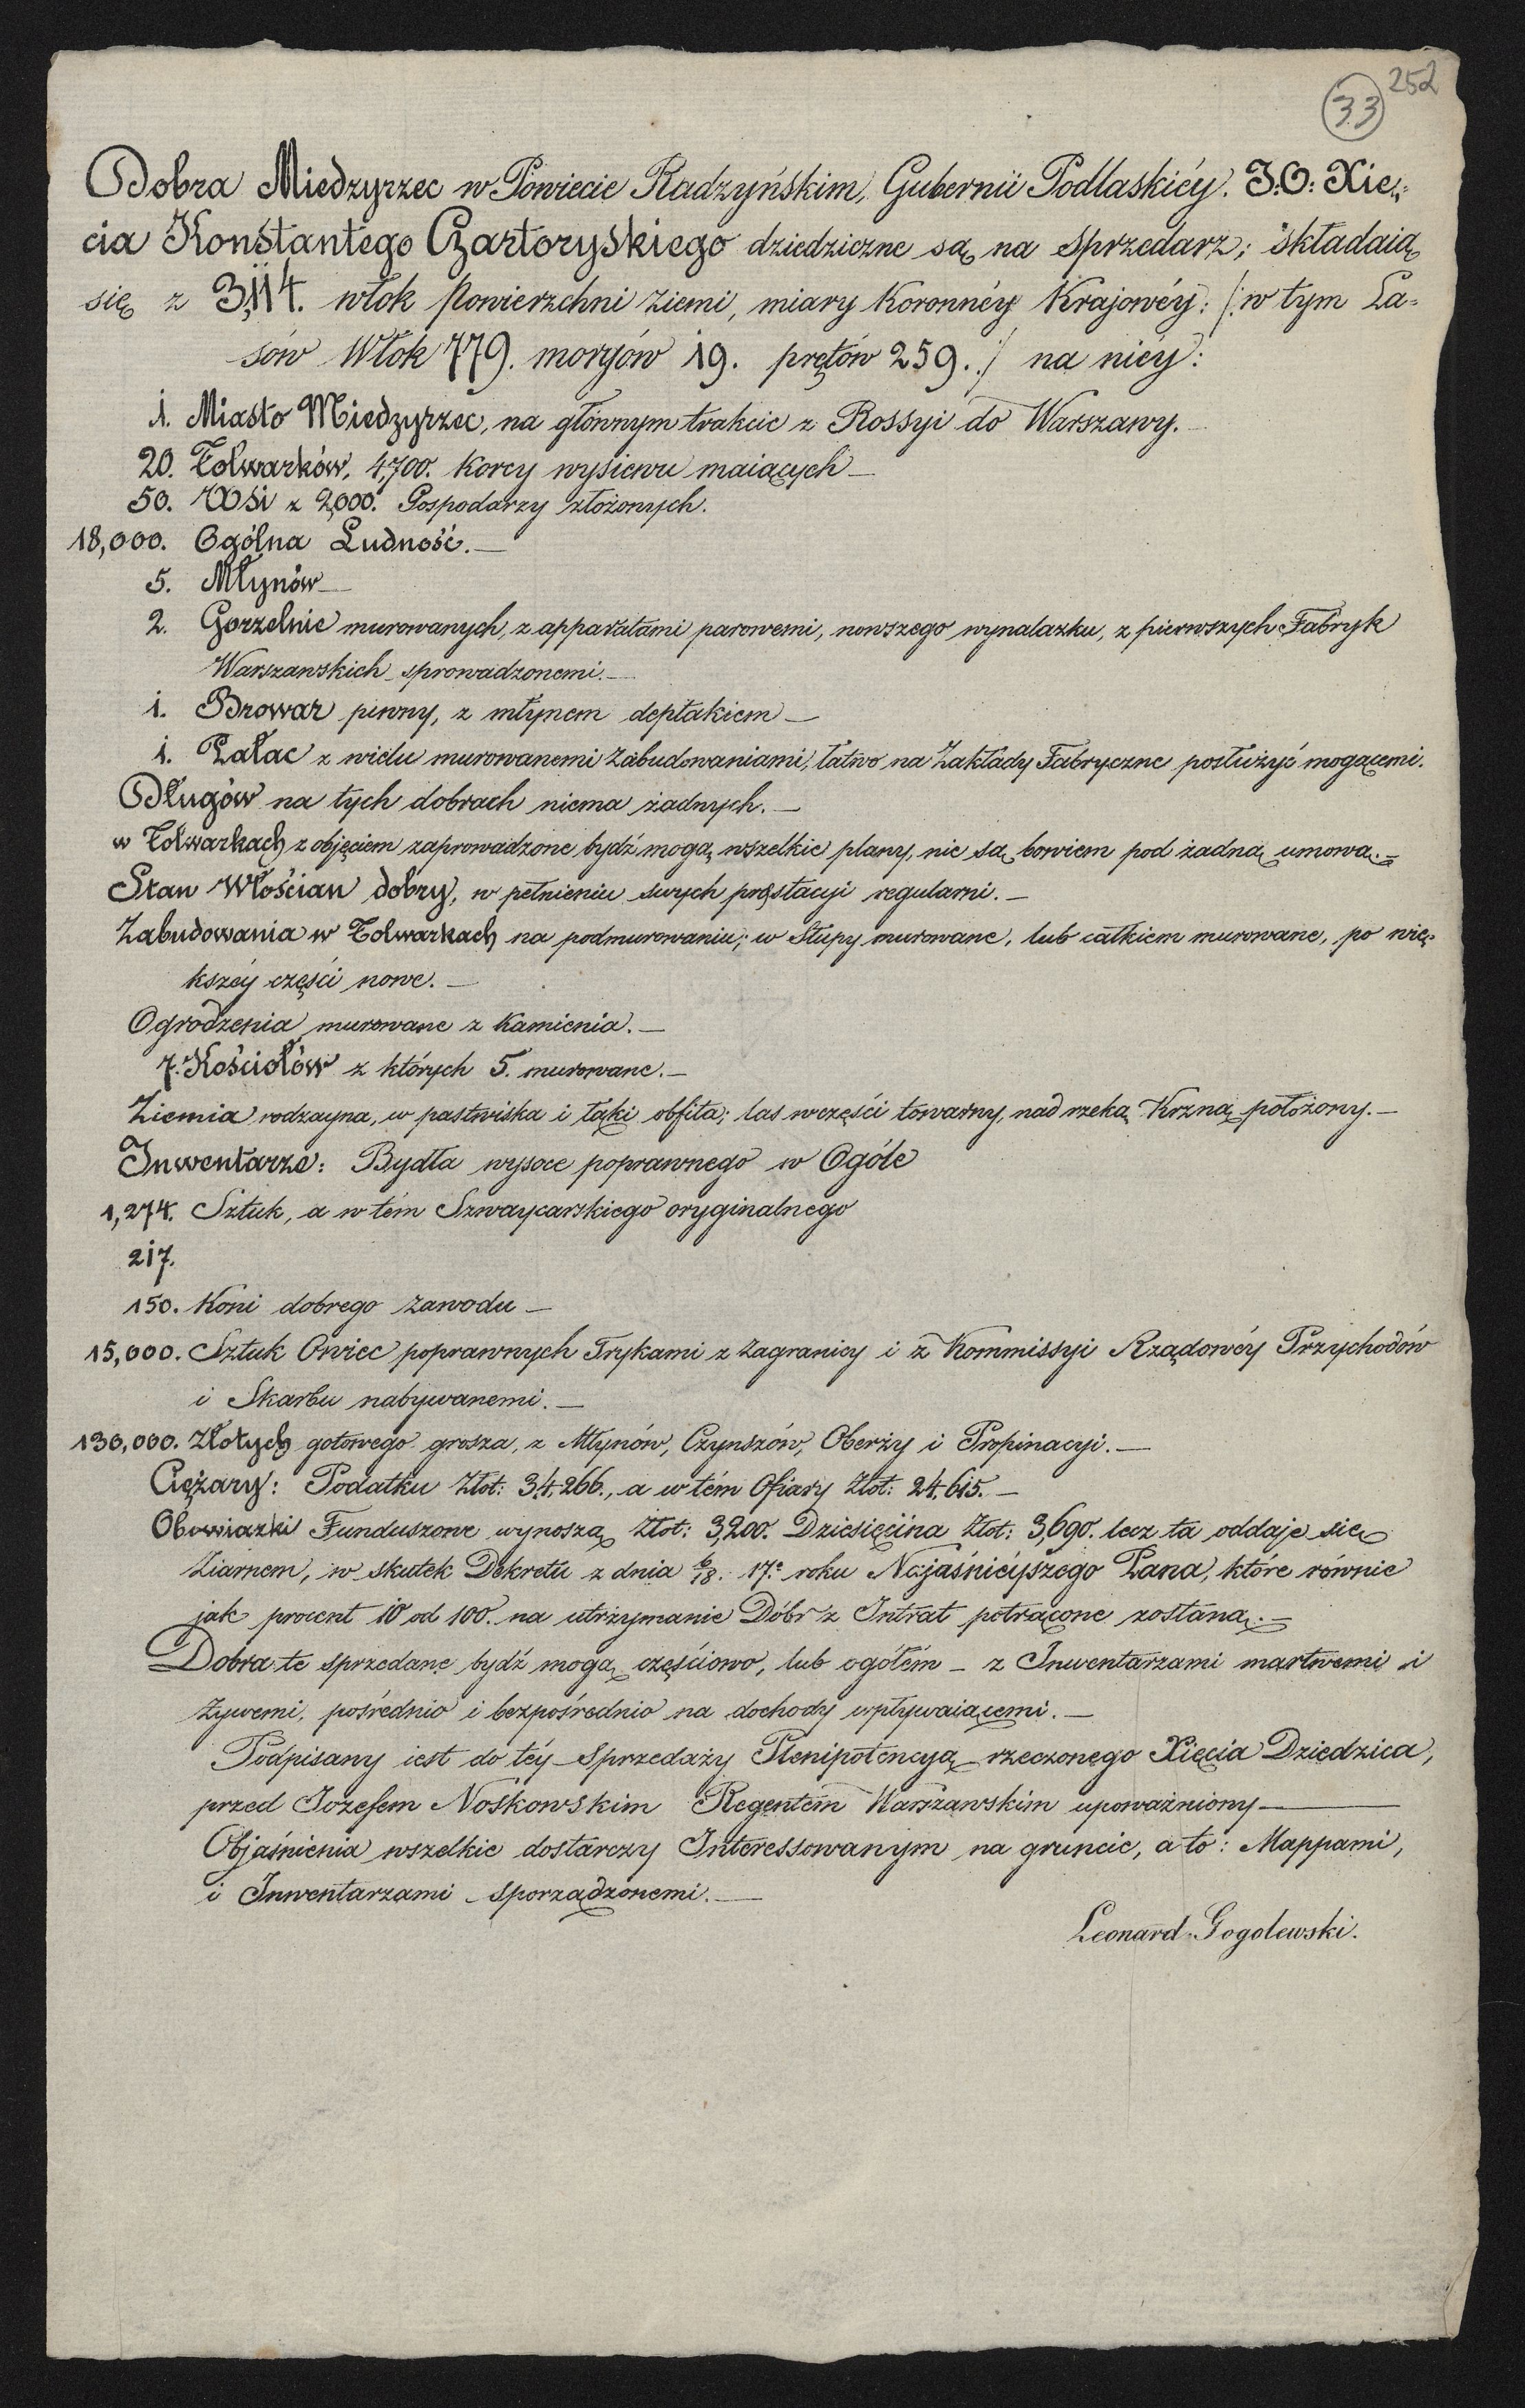 252
33
Dobra Miedzyrzec w Powiecie Radzyńskim, Gubernii Podlaskiéy. J:O: Xię„
cia Konstantego Czartoryskiego dziedziczne są na sprzedarz; składaią
się z 3,114. włok powierzchni ziemi, miary Koronnéy Krajowéy: /: w tym La=
sów Włok 779. morgów 19. prętów 259. :/ na niéy:
1. Miasto Miedzyrzec, na głównym trakcie z Rossyi do Warszawy.—
20. Folwarków, 4,700. Korcy wysiewu maiących—
50. Wsi z 2,000. Gospodarzy złożonych.
18,000. Ogólna Ludność.—
5. Młynów—
2. Gorzelnie murowanych, z apparatami parowemi, nowszego wynalazku, z pierwszych Fabryk
Warszawskich sprowadzonemi.—
1. Browar piwny, z młynem deptakiem—
1. Pałac z wielu murowanemi Zabudowaniami, łatwo na Zakłady Fabryczne posłużyć mogącemi.
Długów na tych dobrach niema żadnych.—
w Folwarkach z objęciem zaprowadzone bydź mogą wszelkie plany, nie są bowiem pod żadną umową.—
Stan Włościan dobry, w pełnieniu swych prestacyi regularni.—
Zabudowania w Folwarkach na podmurowaniu; w Słupy murowane, lub całkiem murowane, po wię„
kszéy części nowe.—
Ogrodzenia murowane z Kamienia.—
7. Kościołów z których 5. murowane.—
Ziemia rodzayna, w pastwiska i łąki obfita; las w części towarny, nad rzeką Krzną położony.—
Inwentarze: Bydła wysoce poprawnego w Ogóle
1,274. Sztuk, a w tém Szwaycarskiego oryginalnego
217.
150. Koni dobrego zawodu—
15,000. Sztuk Owiec poprawnych Trykami z Zagranicy i z Kommissyi Rządowéy Przychodów
i Skarbu nabywanemi.—
130,000. Złotych gotowego grosza, z Młynów, Czynszów, Oberży i Propinacyi.—
Ciężary: Podatku Złot: 34,266., a w tém Ofiary Złot: 24,615.—
Obowiązki Funduszowe wynoszą Złot: 3,200. Dziesięcina Złot: 3,690. lecz ta oddaje się
Ziarnem, w skutek Dekretu z dnia 6/18. 17.e roku Najaśniéyszego Pana, które równie
jak procent 10 od 100. na utrzymanie Dóbr z Intrat potrącone zostaną.—
Dobra te sprzedane bydź mogą częściowo, lub ogółem — z Inwentarzami martwemi i
żywemi, pośrednio i bezpośrednio na dochody wpływaiącemi.—
Podpisany iest do téy Sprzedaży Plenipotencyą rzeczonego Xięcia Dziedzica,
przed Jozefem Noskowskim Regentem Warszawskim upoważniony—
Objaśnienia wszelkie dostarczy Interessowanym na gruncie, a to: Mappami,
i Inwentarzami sporządzonemi.—
Leonard Gogolewski.